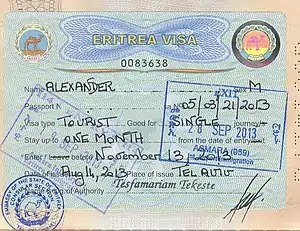 ERITREA VISA
0083638
Name ALEXANDER M
Passport N No 05/03/21/2013
Visa type TOURIST Good for SINGLE journey
Stay up to ONE MONTH from the date of entry
Enter / Leave before November 13, 2013
Date of issue Aug 14, 2013 Place of issue TEL AVIV
of Authority Tesfamariam Tekeste
EXIT
28 SEP 2013
ASMARA (959)
THE STATE OF ERITREA
CONSULAR SE